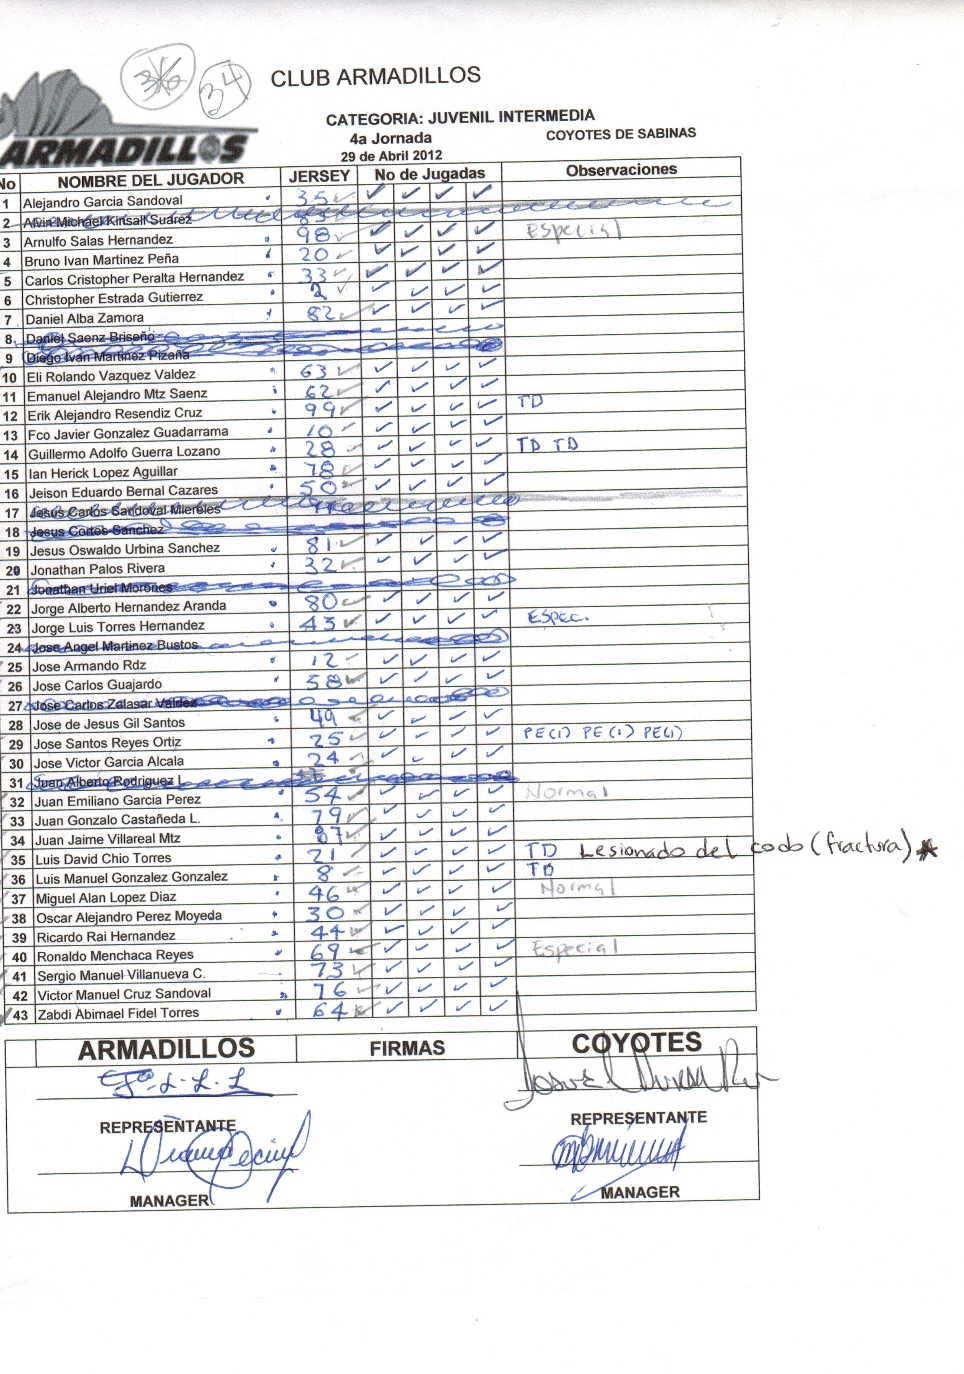 36 34
CLUB ARMADILLOS
ARMADILLOS
CATEGORIA: JUVENIL INTERMEDIA
4a Jornada COYOTES DE SABINAS
29 de Abril 2012
No NOMBRE DEL JUGADOR JERSEY No de Jugadas Observaciones
1 Alejandro Garcia Sandoval 35 ✓ ✓ ✓ ✓ ✓
2 Alvin Michael Kinsall Suarez
3 Arnulfo Salas Hernandez 98 ✓ ✓ ✓ ✓ ✓ Especial
4 Bruno Ivan Martinez Peña 20 ✓ ✓ ✓ ✓ ✓
5 Carlos Cristopher Peralta Hernandez 33 ✓ ✓ ✓ ✓ ✓
6 Christopher Estrada Gutierrez 2 ✓ ✓ ✓ ✓ ✓
7 Daniel Alba Zamora 82 ✓ ✓ ✓ ✓ ✓
8 Daniel Saenz Briseño
9 Diego Ivan Martinez Pizaña
10 Eli Rolando Vazquez Valdez 63 ✓ ✓ ✓ ✓ ✓
11 Emanuel Alejandro Mtz Saenz 62 ✓ ✓ ✓ ✓ ✓
12 Erik Alejandro Resendiz Cruz 99 ✓ ✓ ✓ ✓ ✓ TD
13 Fco Javier Gonzalez Guadarrama 10 ✓ ✓ ✓ ✓ ✓
14 Guillermo Adolfo Guerra Lozano 28 ✓ ✓ ✓ ✓ ✓ TD TD
15 Ian Herick Lopez Aguillar 78 ✓ ✓ ✓ ✓ ✓
16 Jeison Eduardo Bernal Cazares 50 ✓ ✓ ✓ ✓ ✓
17 Jesus Carlos Sandoval Miereles
18 Jesus Cortes Sanchez
19 Jesus Oswaldo Urbina Sanchez 81 ✓ ✓ ✓ ✓ ✓
20 Jonathan Palos Rivera 32 ✓ ✓ ✓ ✓ ✓
21 Jonathan Uriel Morones
22 Jorge Alberto Hernandez Aranda 80 ✓ ✓ ✓ ✓ ✓
23 Jorge Luis Torres Hernandez 43 ✓ ✓ ✓ ✓ ✓ ESPEC.
24 Jose Angel Martinez Bustos
25 Jose Armando Rdz 12 ✓ ✓ ✓ ✓ ✓
26 Jose Carlos Guajardo 58 ✓ ✓ ✓ ✓ ✓
27 Jose Carlos Zalasar Valdez
28 Jose de Jesus Gil Santos 49 ✓ ✓ ✓ ✓ ✓
29 Jose Santos Reyes Ortiz 25 ✓ ✓ ✓ ✓ ✓ PE(1) PE(1) PE(1)
30 Jose Victor Garcia Alcala 24 ✓ ✓ ✓ ✓ ✓
31 Juan Alberto Rodriguez L
32 Juan Emiliano Garcia Perez 54 ✓ ✓ ✓ ✓ ✓ Normal
33 Juan Gonzalo Castañeda L. 79 ✓ ✓ ✓ ✓ ✓
34 Juan Jaime Villareal Mtz 87 ✓ ✓ ✓ ✓ ✓
35 Luis David Chio Torres 21 ✓ ✓ ✓ ✓ ✓ TD Lesionado del codo (fractura) ★
36 Luis Manuel Gonzalez Gonzalez 8 ✓ ✓ ✓ ✓ ✓ TD
37 Miguel Alan Lopez Diaz 46 ✓ ✓ ✓ ✓ ✓ Normal
38 Oscar Alejandro Perez Moyeda 30 ✓ ✓ ✓ ✓ ✓
39 Ricardo Rai Hernandez 44 ✓ ✓ ✓ ✓ ✓
40 Ronaldo Menchaca Reyes 69 ✓ ✓ ✓ ✓ ✓ Especial
41 Sergio Manuel Villanueva C. 73 ✓ ✓ ✓ ✓ ✓
42 Victor Manuel Cruz Sandoval 76 ✓ ✓ ✓ ✓ ✓
43 Zabdi Abimael Fidel Torres 64 ✓ ✓ ✓ ✓ ✓
ARMADILLOS FIRMAS COYOTES
REPRESENTANTE REPRESENTANTE
MANAGER MANAGER